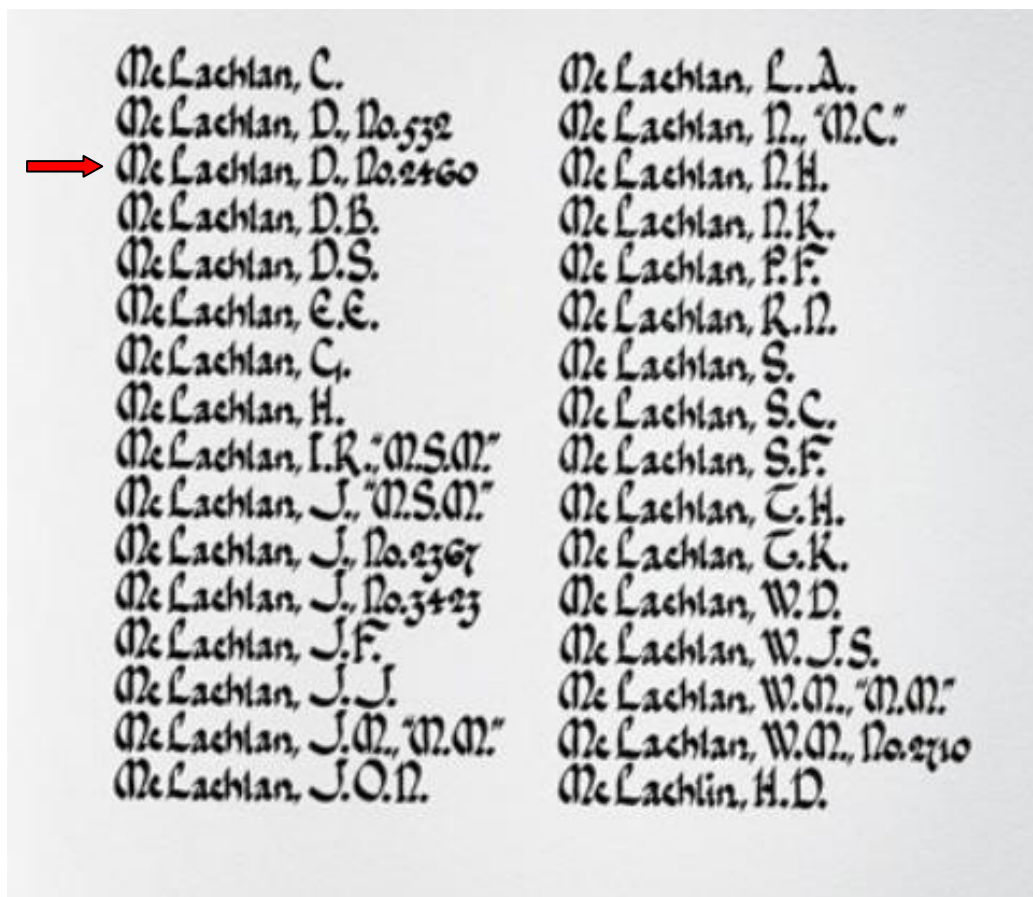 McLachlan, C.
McLachlan, D., No.532
McLachlan, D., No.2460
McLachlan, D.B.
McLachlan, D.S.
McLachlan, E.E.
McLachlan, G.
McLachlan, H.
McLachlan, I.R., "M.S.M."
McLachlan, J., "M.S.M."
McLachlan, J., No.2367
McLachlan, J., No.3423
McLachlan, J.F.
McLachlan, J.J.
McLachlan, J.M., "M.M."
McLachlan, J.O.N.
McLachlan, L.A.
McLachlan, N., "M.C."
McLachlan, N.H.
McLachlan, N.K.
McLachlan, P.F.
McLachlan, R.N.
McLachlan, S.
McLachlan, S.C.
McLachlan, S.F.
McLachlan, T.H.
McLachlan, T.K.
McLachlan, W.D.
McLachlan, W.J.S.
McLachlan, W.M., "M.M."
McLachlan, W.M., No.2710
McLachlin, H.D.